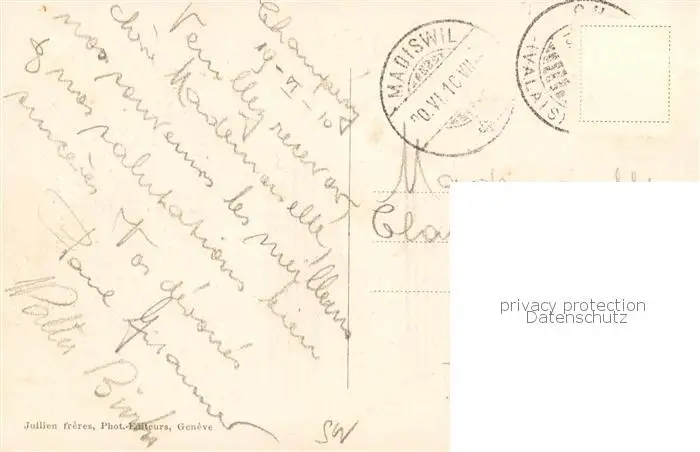 Champéry
19-VI-10
Veuillez recevoir
chère Mademoiselle,
nos souvenirs les meilleurs
& nos salutations bien
sincères
Vos dévoués
Walter
MADISWIL
20.VI.10
(VALAIS)
Cla
privacy protection
Datenschutz
Jullien frères, Phot.-Editeurs, Genève